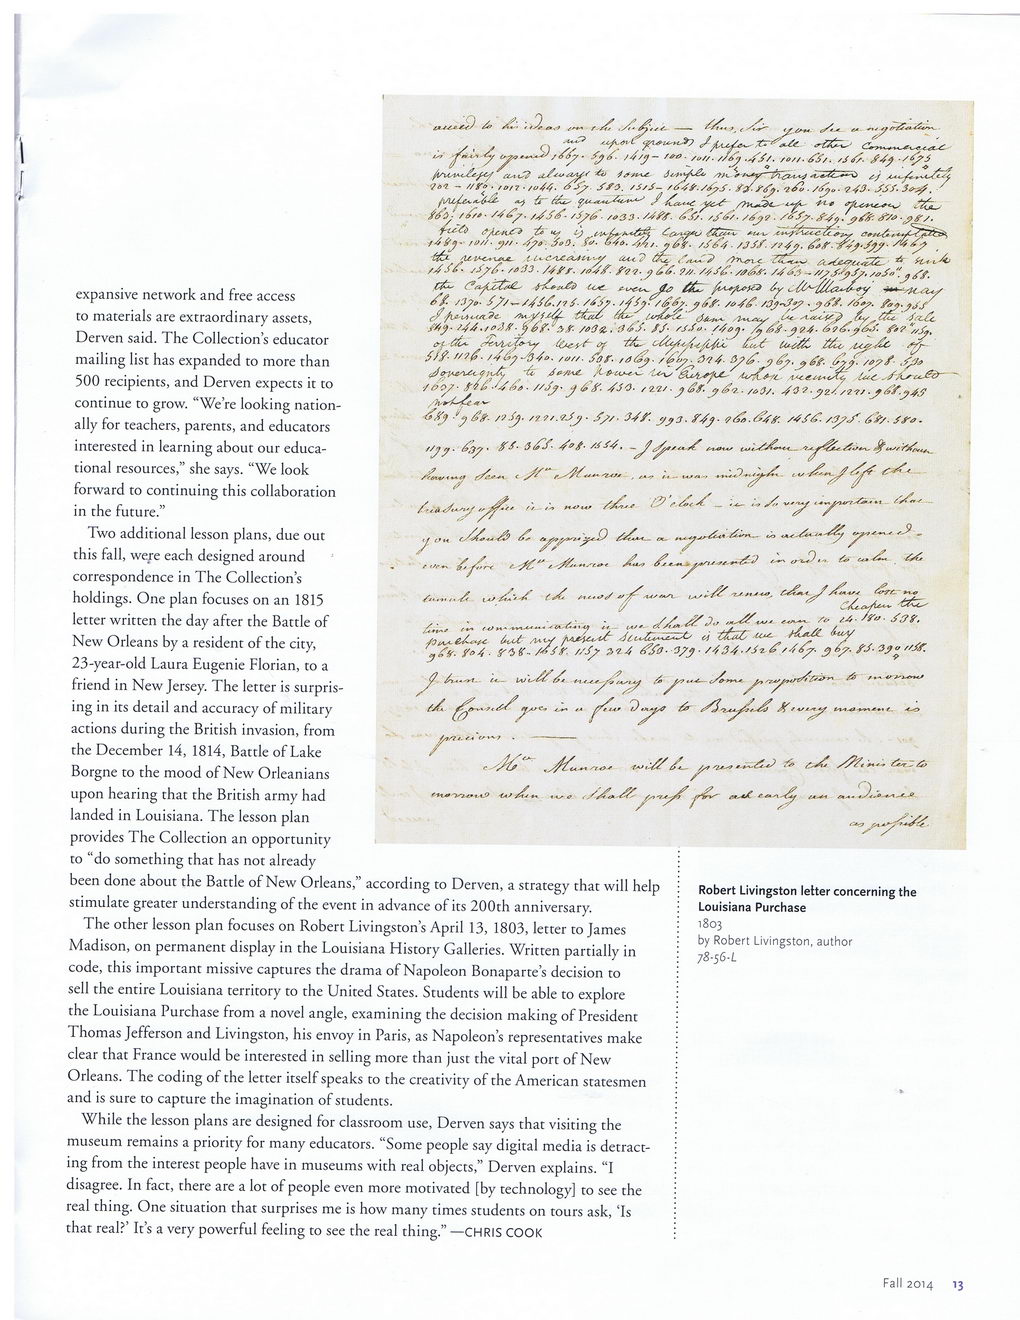 expansive network and free access
to materials are extraordinary assets,
Derven said. The Collection's educator
mailing list has expanded to more than
500 recipients, and Derven expects it to
continue to grow. “We're looking nation-
ally for teachers, parents, and educators
interested in learning about our educa-
tional resources,” she says. “We look
forward to continuing this collaboration
in the future.”
Two additional lesson plans, due out
this fall, were each designed around
correspondence in The Collection's
holdings. One plan focuses on an 1815
letter written the day after the Battle of
New Orleans by a resident of the city,
23-year-old Laura Eugenie Florian, to a
friend in New Jersey. The letter is surpris-
ing in its detail and accuracy of military
actions during the British invasion, from
the December 14, 1814, Battle of Lake
Borgne to the mood of New Orleanians
upon hearing that the British army had
landed in Louisiana. The lesson plan
provides The Collection an opportunity
to “do something that has not already
been done about the Battle of New Orleans,” according to Derven, a strategy that will help
stimulate greater understanding of the event in advance of its 200th anniversary.
The other lesson plan focuses on Robert Livingston's April 13, 1803, letter to James
Madison, on permanent display in the Louisiana History Galleries. Written partially in
code, this important missive captures the drama of Napoleon Bonaparte's decision to
sell the entire Louisiana territory to the United States. Students will be able to explore
the Louisiana Purchase from a novel angle, examining the decision making of President
Thomas Jefferson and Livingston, his envoy in Paris, as Napoleon's representatives make
clear that France would be interested in selling more than just the vital port of New
Orleans. The coding of the letter itself speaks to the creativity of the American statesmen
and is sure to capture the imagination of students.
While the lesson plans are designed for classroom use, Derven says that visiting the
museum remains a priority for many educators. “Some people say digital media is detract-
ing from the interest people have in museums with real objects,” Derven explains. “I
disagree. In fact, there are a lot of people even more motivated [by technology] to see the
real thing. One situation that surprises me is how many times students on tours ask, ‘Is
that real?’ It's a very powerful feeling to see the real thing.” —CHRIS COOK
to his ideas on the Subject — thus, Sir you see a negotiation
upon grounds I prefer to all other Commercial
is fairly opened
privileges and always to some simple money transaction is infinitely
preferable as to the quantum I have yet made up no opinion the
field opened to us is infinitely larger than our instructions contemplated
the revenue increasing and the land more than adequate to sink
the Capital should we even go the proposed by Mr Marboy nay
I persuade myself that the whole sum may be raised by the sale
of the Territory West of the Mississippi but with the right of
Sovereignty to some power in Europe whose vicinity we should
not fear
I speak now without reflection & without
having seen Mr Munroe, as it was midnight when I left the
treasury office it is now three O'clock — it is so very important that
you should be apprized that a negotiation is actually opened
even before Mr Munroe has been presented in order to calm the
tumult which the news of war will renew, that I have lost no
Cheapen the
time in communicating it we shall do all we can to 24. 180. 538.
purchase but my present sentiment is that we shall buy
I trust it will be necessary to put some proposition to morrow
the Consull goes in a few days to Brussels & every moment is
precious. —
Mr Munroe will be presented to the Minister to
morrow when we shall press for as early an audience
as possible
Robert Livingston letter concerning the
Louisiana Purchase
1803
by Robert Livingston, author
78-56-L
Fall 2014 13